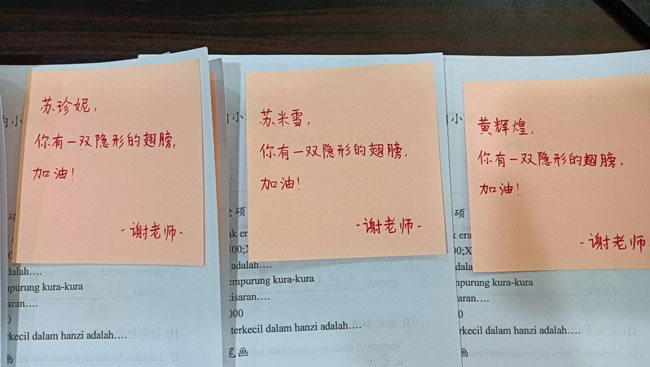 苏珍妮,
你有一双隐形的翅膀,
加油!
-谢老师-
苏米雪,
你有一双隐形的翅膀,
加油!
-谢老师-
黄辉煌,
你有一双隐形的翅膀,
加油!
-谢老师
小
小
硕
硕
adalah....
mpurung kura-kura
saran....
rkecil dalam hanzi adalah....
画
k era
00;X
adalah....
empurung kura-kura
isaran....
000
terkecil dalam hanzi adalah....
笔画
empurung kura-kura
isaran....
terkecil dalam hanzi adalah....